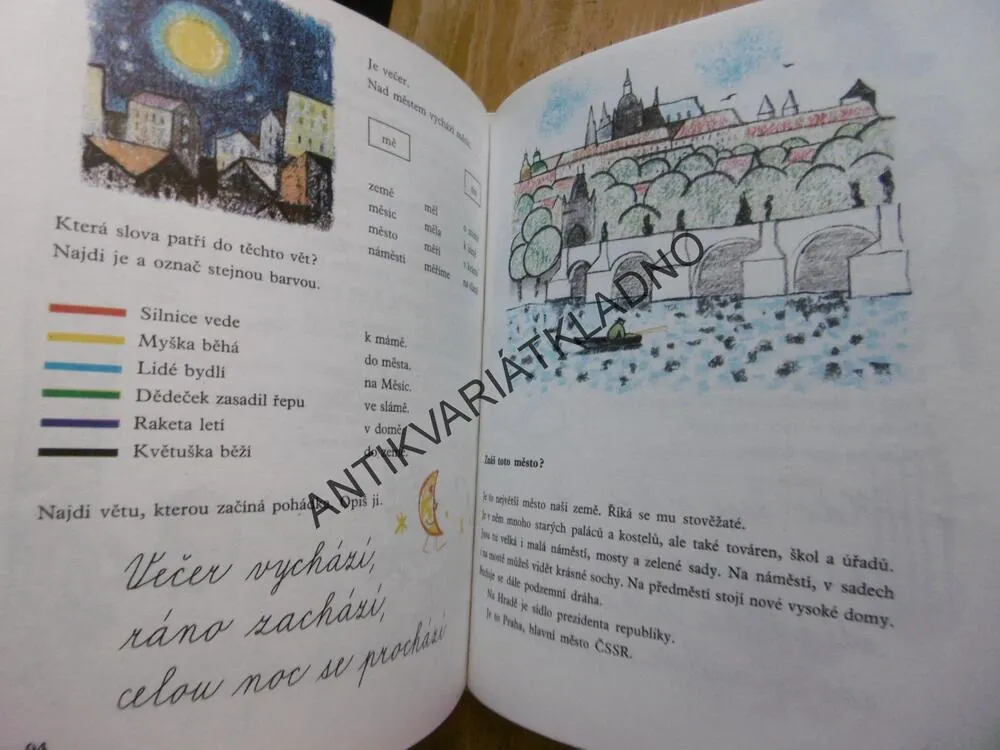 Je večer.
Nad městem vychází měsíc.
mě
země
měsíc
město
náměstí
měl
měla
měří
měříme
Která slova patří do těchto vět?
Najdi je a označ stejnou barvou.
Silnice vede
Myška běhá
Lidé bydlí
Dědeček zasadil řepu
Raketa letí
Květuška běží
k mámě.
do města.
na Měsíc.
ve slámě.
v domě
do země.
Najdi větu, kterou začíná pohádka. Opiš ji.
Večer vychází,
ráno zachází,
celou noc se prochází
64
Znáš toto město?
Je to největší město naší země. Říká se mu stověžaté.
Je v něm mnoho starých paláců a kostelů, ale také továren, škol a úřadů.
Jsou tu velká i malá náměstí, mosty a zelené sady. Na náměstí, v sadech
i na mostě můžeš vidět krásné sochy. Na předměstí stojí nové vysoké domy.
Buduje se dále podzemní dráha.
Na Hradě je sídlo prezidenta republiky.
Je to Praha, hlavní město ČSSR.
ANTIKVARIÁTKLADNO